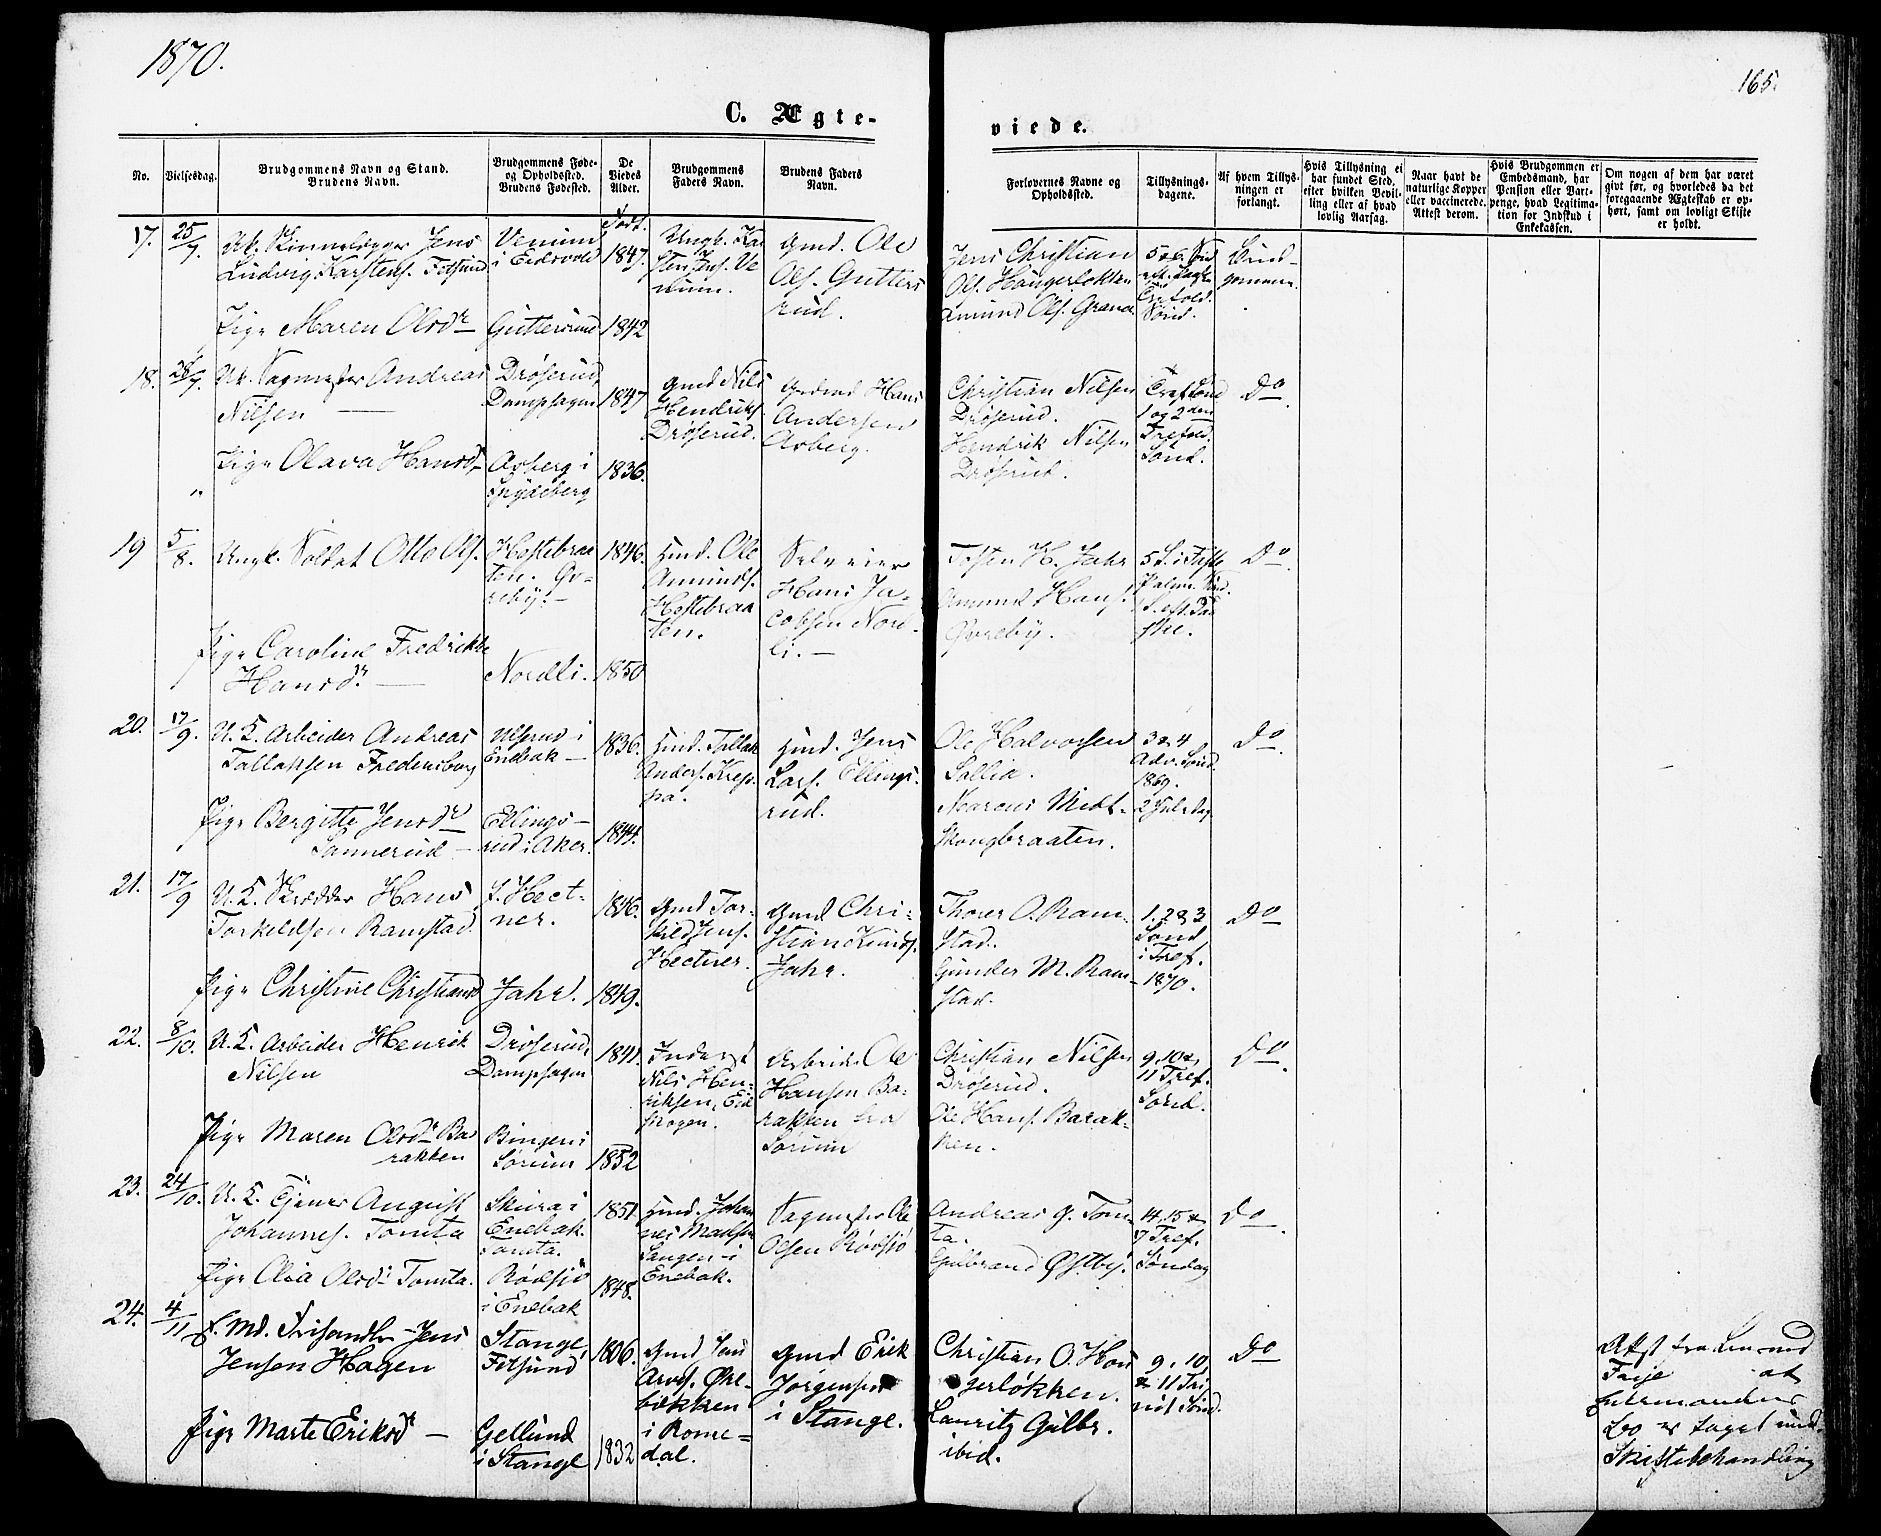 1870.
165.
C. Ægte-
viede.
No.
Vielsesdag.
Brudgommens Navn og Stand.
Brudens Navn.
Brudgommens Føde-
og Opholdssted.
Brudens Fødested.
De
Viedes
Alder.
Brudgommens
Faders Navn.
Brudens Faders
Navn.
Forlovernes Navne og
Opholdssted.
Tillysnings-
dagene.
Af hvem Tillys-
ningen er
forlangt.
Hvis Tillysning ei
har fundet Sted,
efter hvilken Bevil-
ling eller af hvad
lovlig Aarsag.
Naar havt de
naturlige Kopper
eller vaccinerede.
Attest derom.
Hvis Brudgommen er
Embedsmand, har
Pension eller Vart-
penge, hvad Legitima-
tion for Indskud i
Enkekassen.
Om nogen af dem har været
givt før, og hvorledes da det
foregaaende Ægteskab er op-
hørt, samt om lovligt Skifte
er holdt.
17.
25/7.
Jens
Ludvig Karstens. Fetsund
Pige Maren Olsdr
Venium
i Eidsvold
Guttersrud
Født.
1847.
1842
Ungk. Kar
sten Jens. Ve
nium.
Gmd. Ole
Ols. Gutters
rud.
Jens Christian
Ols. Haugerløkken
Amund Ols.
5 & 6. Sønd
Trefold.
Sønd.
Brud-
gommen.
18.
28/7.
Uk. Sagmester Andreas
Nilsen
Pige Olava Hansd.
Drøserud,
Dampsagen
Asberg i
1847
1836.
Gmd Nils
Hendriks.
Drøserud.
Hans
Andersen
Asberg.
Christian Nilsen
Drøserud.
Hendrik Nilsen
Drøserud.
1 og 2den
Trefold.
Sønd.
Do
19
5/8.
Ungk. Soldat Otto Ols.
Pige Caroline Fredrikke
Hansdr.
Hestebraa
ten.
Nordli.
1846.
1850
Hmd. Ole
Amunds.
Hestebraa
ten.
Selveier
Hans Ja-
cobsen Nord-
li.
H. Jahr
Amund Hans.
Øvreby.
5 S. i Faste
Palme Sønd.
1 S. eft. Paa
ske.
Do
20.
17/9.
U. K. Arbeider Andreas
Tallaksen Fredensborg
Pige Bergitte Jensdr
Sannerud
Ulsrud i
Enebak
Ellings-
rud i Aker.
1836.
1844.
Hmd. Tallak
Anders.
Hmd. Jens
Lars. Ellings-
rud.
Ole Halvorsen
Sallia.
Marcus Midt-
skougbraaten.
3 & 4
Adv. Sønd.
1869.
2 Juledag
Do
21.
17/9
U. K. Skrædder Hans
Torkeldsen Ramstad.
Pige Christine Christiansd
f. Hect-
ner.
Jahr.
1846.
1849.
Gmd Tor-
kild Jens.
Hectner.
Gmd Chri-
stian Knuds.
Jahr.
Thorer O. Ram-
stad.
Gunder M. Ram-
stad.
1. 2 & 3
Sønd
i Tref.
1870.
Do
22.
8/10.
U. K. Arbeider Henrik
Nilsen
Pige Maren Olsdr Ba
rakken
Drøserud,
Dampsagen
Bingen i
Sørum
1841.
1852
Inderst
Nils Hen-
riksen, Eid
skogen.
Arbeider Ole
Hansen Ba-
rakken fra
Sørum
Christian Nilsen
Drøserud.
Ole Hans. Barak-
ken.
9, 10 &
11 Tref.
Sønd.
Do
23.
24/10.
U. K. Tjener August
Johannes. Tomta
Pige Olea Olsdr Tomta.
Skura i
Enebak.
Tomta.
Rødsjø
i Enebak
1851
1848.
Hmd. Johan
nes Madsen
Tangen i
Enebak.
Sagmester Ole
Olsen Rødsjø
Andreas G. Tom-
ta.
Gulbrand Østby.
14, 15 &
17 Tref.
Søndag
Do
24.
4/11
Jens
Jensen Hagen
Pige Marte Eriksdr
Stange,
Fetsund
Gellund
i Stange
1806.
1832
Gmd Jens
Arvds. Øke-
bækken
i Rome-
dal.
Gmd Erik
Jørgensen
i Stange.
Christian O. Hau
gerløkken.
Lauritz Gulbr.
ibid.
9, 10
& 11 Tri
nit. Sønd.
Do
Attest fra Lensmand
Faye at
Enkemandens
Bo er taget under
Skiftebehandling